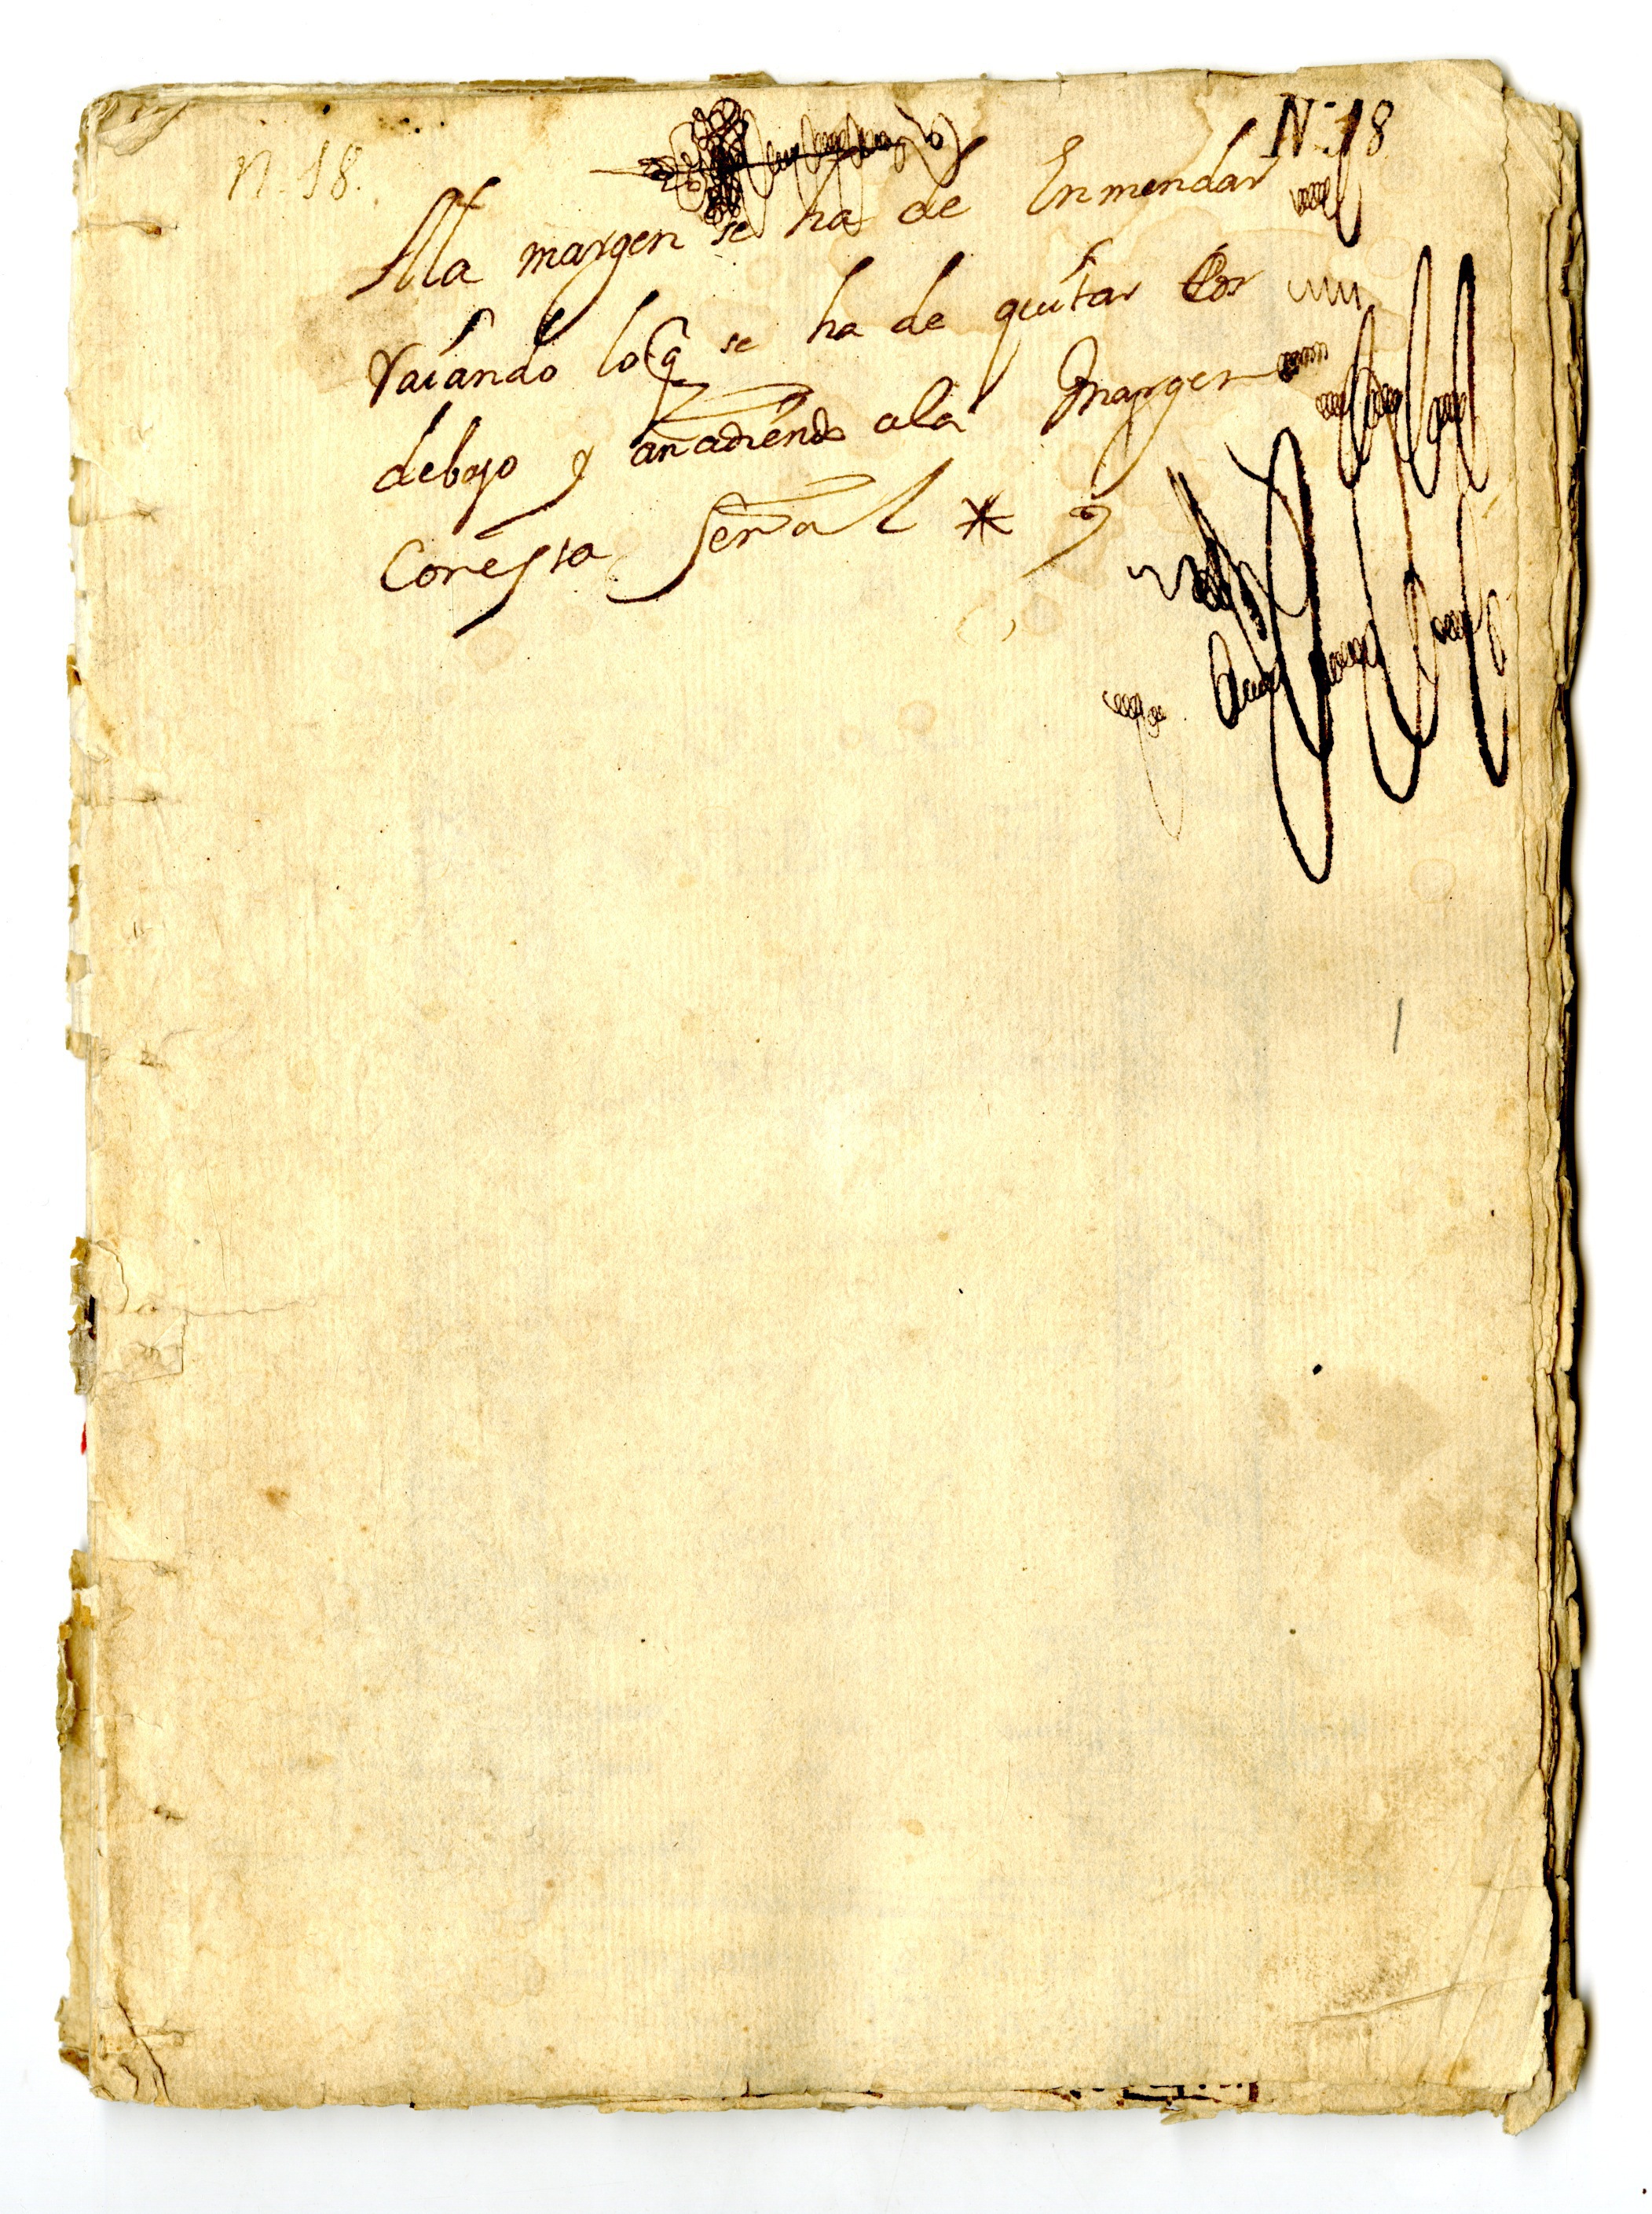 n. 18.
N. 18
Ala margen se ha de Enmendar
raiando lo q se ha de quitar por
debajo y añadiendo ala margen
Conesta Señal *